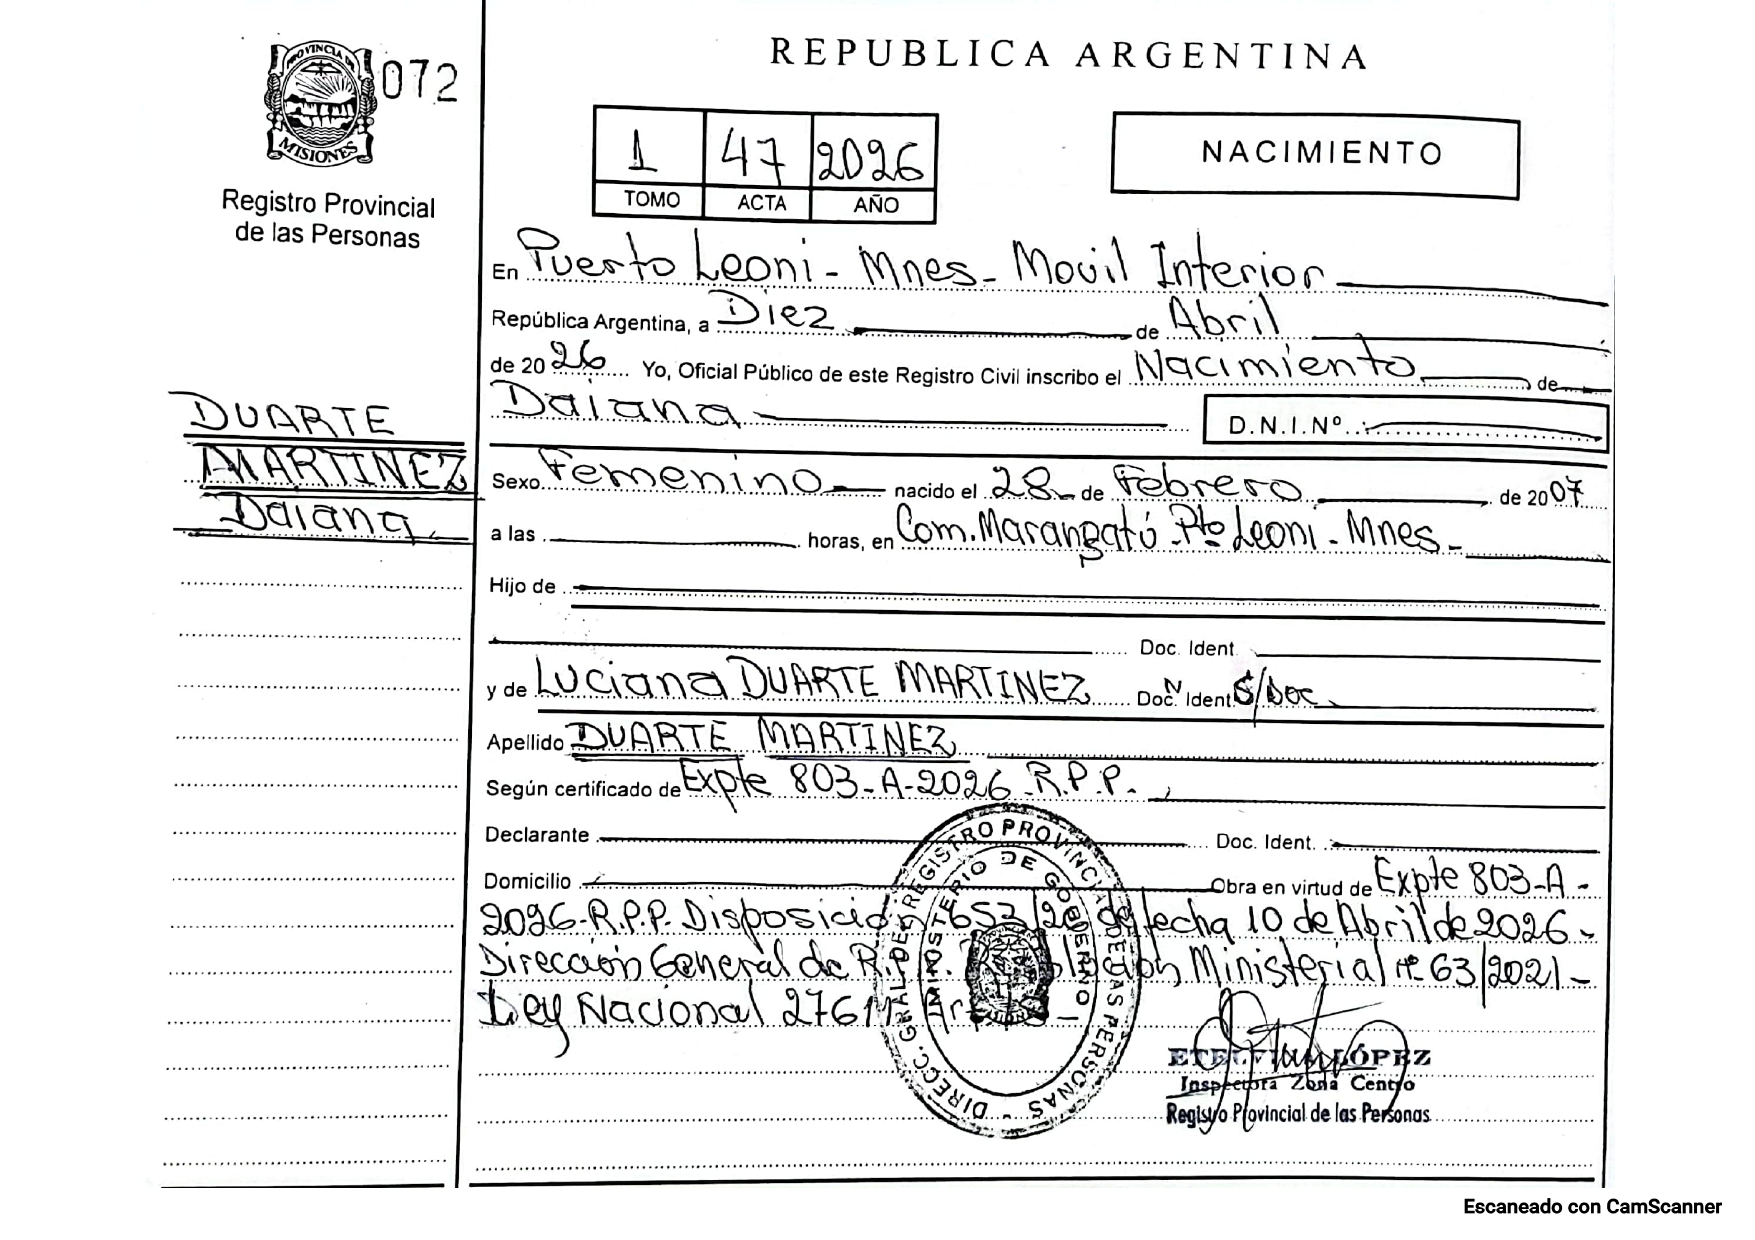 PROVINCIA DE
MISIONES
072
Registro Provincial
de las Personas
REPUBLICA ARGENTINA
1 47 2026
TOMO ACTA AÑO
NACIMIENTO
En Puerto Leoni - Mnes - Movil Interior
República Argentina, a Diez de Abril
de 2026 Yo, Oficial Público de este Registro Civil inscribo el Nacimiento de
Daiana D.N.I.Nº
DUARTE
MARTINEZ
Daiana
Sexo Femenino nacido el 28 de Febrero de 2007
a las horas, en Com. Marangatú - Pto Leoni - Mnes -
Hijo de
Doc. Ident.
y de Luciana DUARTE MARTINEZ Doc. Ident. S/Doc
Apellido DUARTE MARTINEZ
Según certificado de Expte 803-A-2026 - R.P.P. -
Declarante Doc. Ident.
Domicilio Obra en virtud de Expte 803-A-
2026-R.P.P. Disposición 653/26 de fecha 10 de Abril de 2026 -
Dirección General de R.P.P. Ministerial nº 63/2021 -
Ley Nacional 27611
DIRECC. GRAL. DEL REGISTRO PROVINCIAL DE LAS PERSONAS -
MINISTERIO DE GOBIERNO
LÓPEZ
Inspectora Zona Centro
Registro Provincial de las Personas
Escaneado con CamScanner